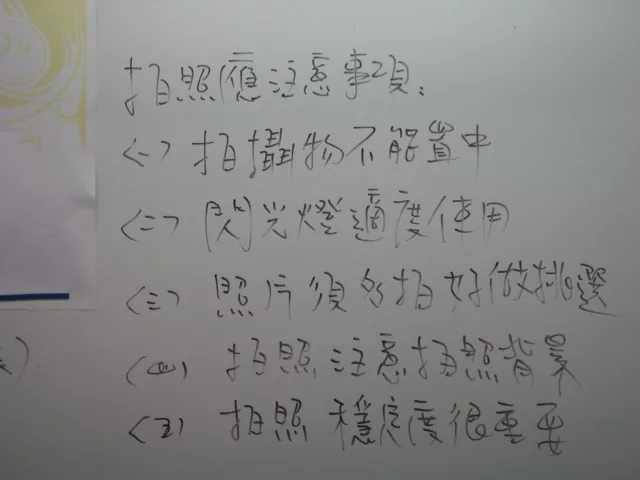 拍照應注意事項:
<一> 拍攝物不能置中
<二> 閃光燈適度使用
<三> 照片須多拍好做挑選
(四) 拍照注意拍照背景
<五> 拍照穩定度很重要